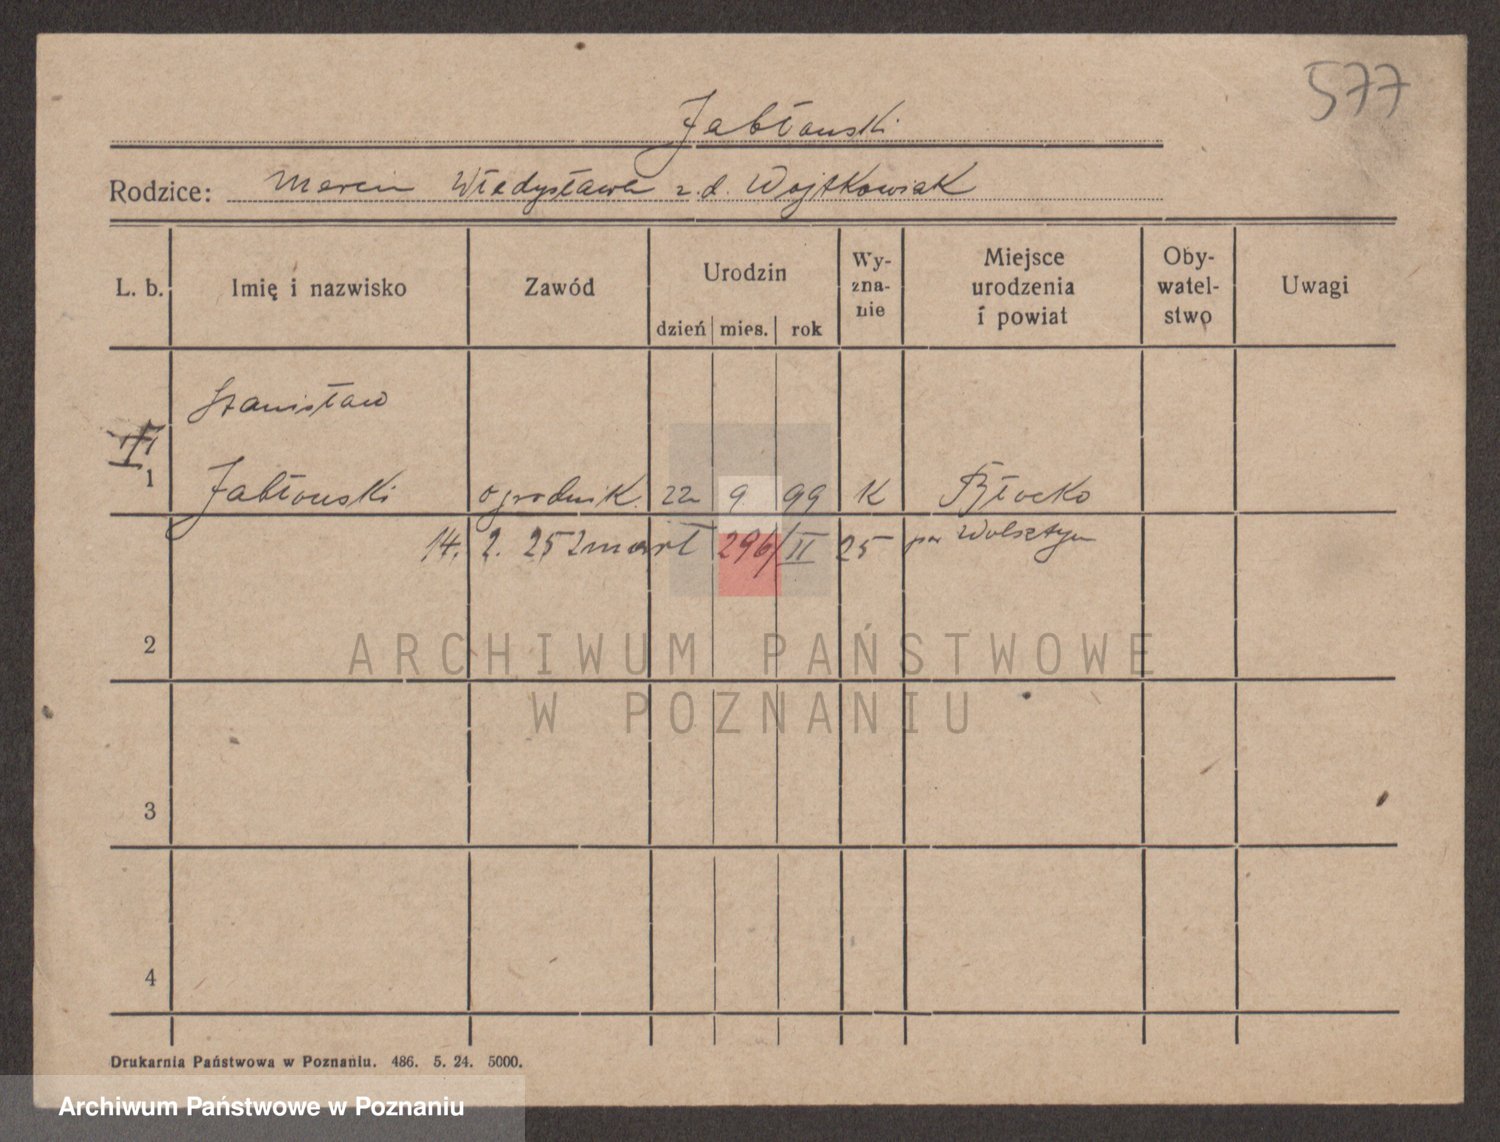 577
Jabłonski
Rodzice: Marcin Władysława z.d. Wojtkowiak
L. b. Imię i nazwisko Zawód Urodzin dzień mies. rok Wy-zna-nie Miejsce urodzenia i powiat Oby-watel-stwo Uwagi
Stanisław
1 Jabłonski ogrodnik 22 9 99 K Błocko
14. 2. 25 zmarł 296/II 25 pow Wolsztyn
2
ARCHIWUM PAŃSTWOWE
W POZNANIU
3
4
Drukarnia Państwowa w Poznaniu. 486. 5. 24. 5000.
Archiwum Państwowe w Poznaniu